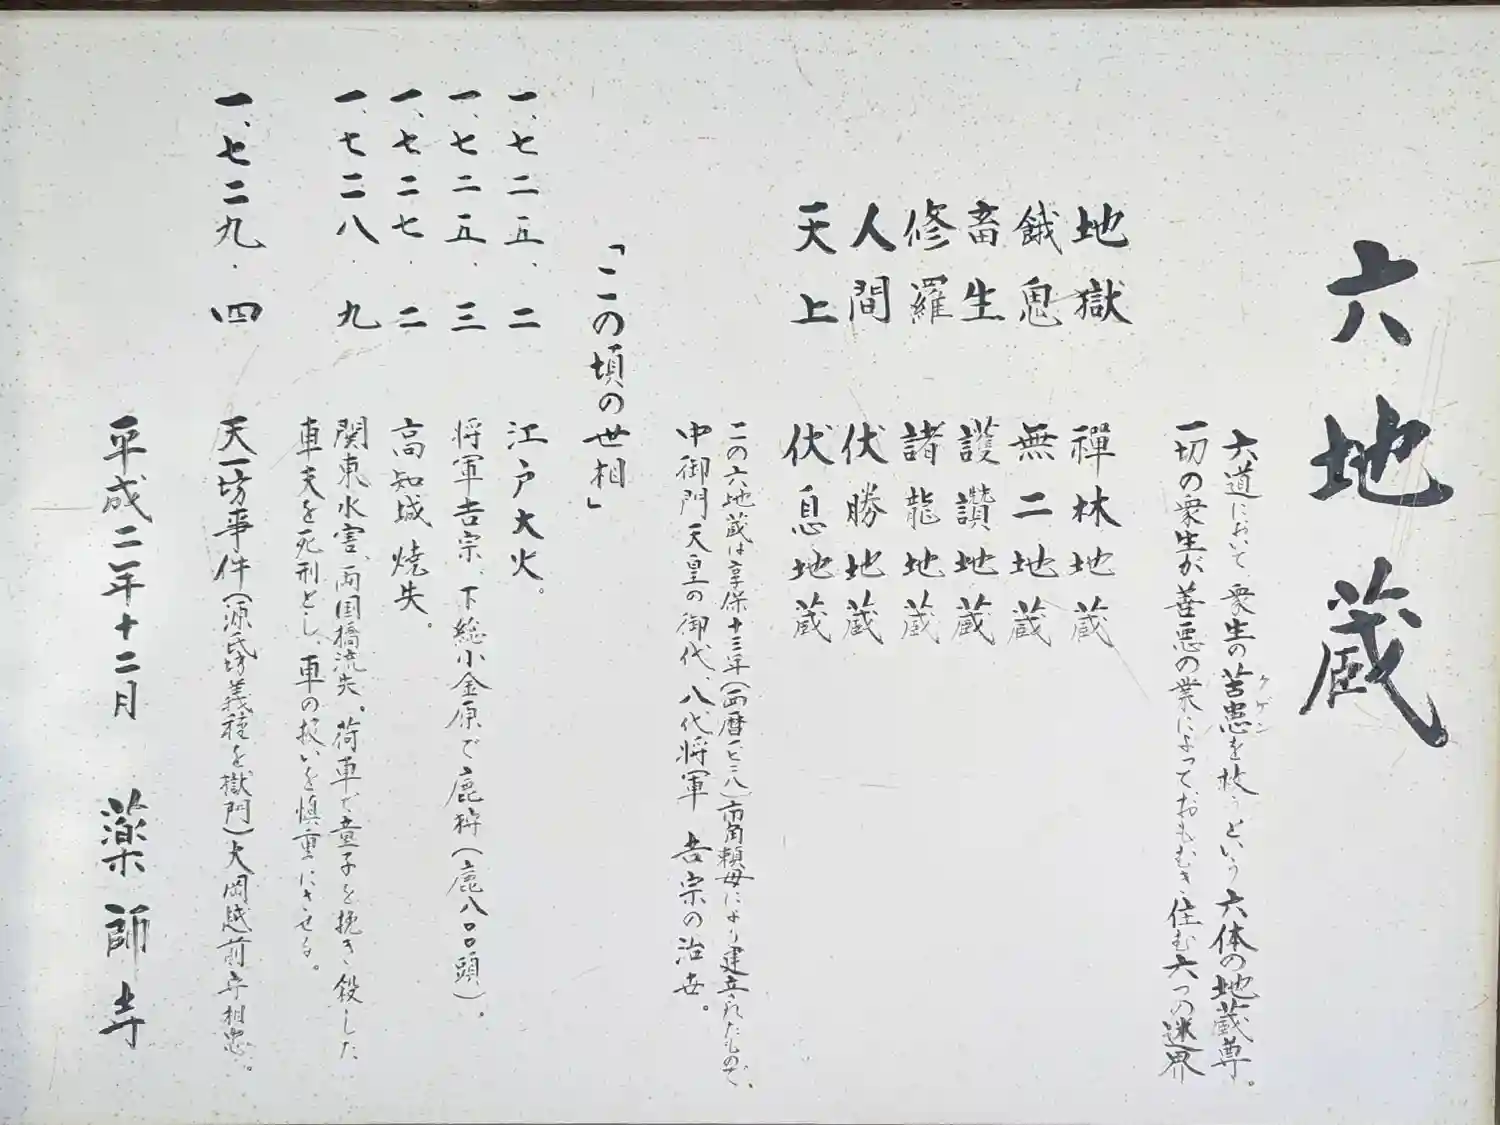 六地蔵
六道において衆生の苦患を救うという六体の地蔵尊。
クゲン
一切の衆生が善悪の業によっておもむき住む六つの迷界
地獄 禪林地蔵
餓鬼 無二地蔵
畜生 護讚地蔵
修羅 諸龍地蔵
人間 伏勝地蔵
天上 伏息地蔵
この六地蔵は享保十三年(西暦一七二八)市角頼母により建立されたもので、
中御門天皇の御代、八代将軍 吉宗の治世。
「この頃の世相」
一、七二五、二 江戸大火。
一、七二五、三 将軍吉宗、下総小金原で鹿狩(鹿八〇〇頭)。
一、七二七、二 高知城焼失。
一、七二八、九 関東水害、両国橋流失。荷車で童子を挽き殺した
車夫を死刑とし、車の扱いを慎重にさせる。
一、七二九、四 天一坊事件(源氏坊義種を獄門)大岡越前守相忠。
平成二年十二月 薬師寺